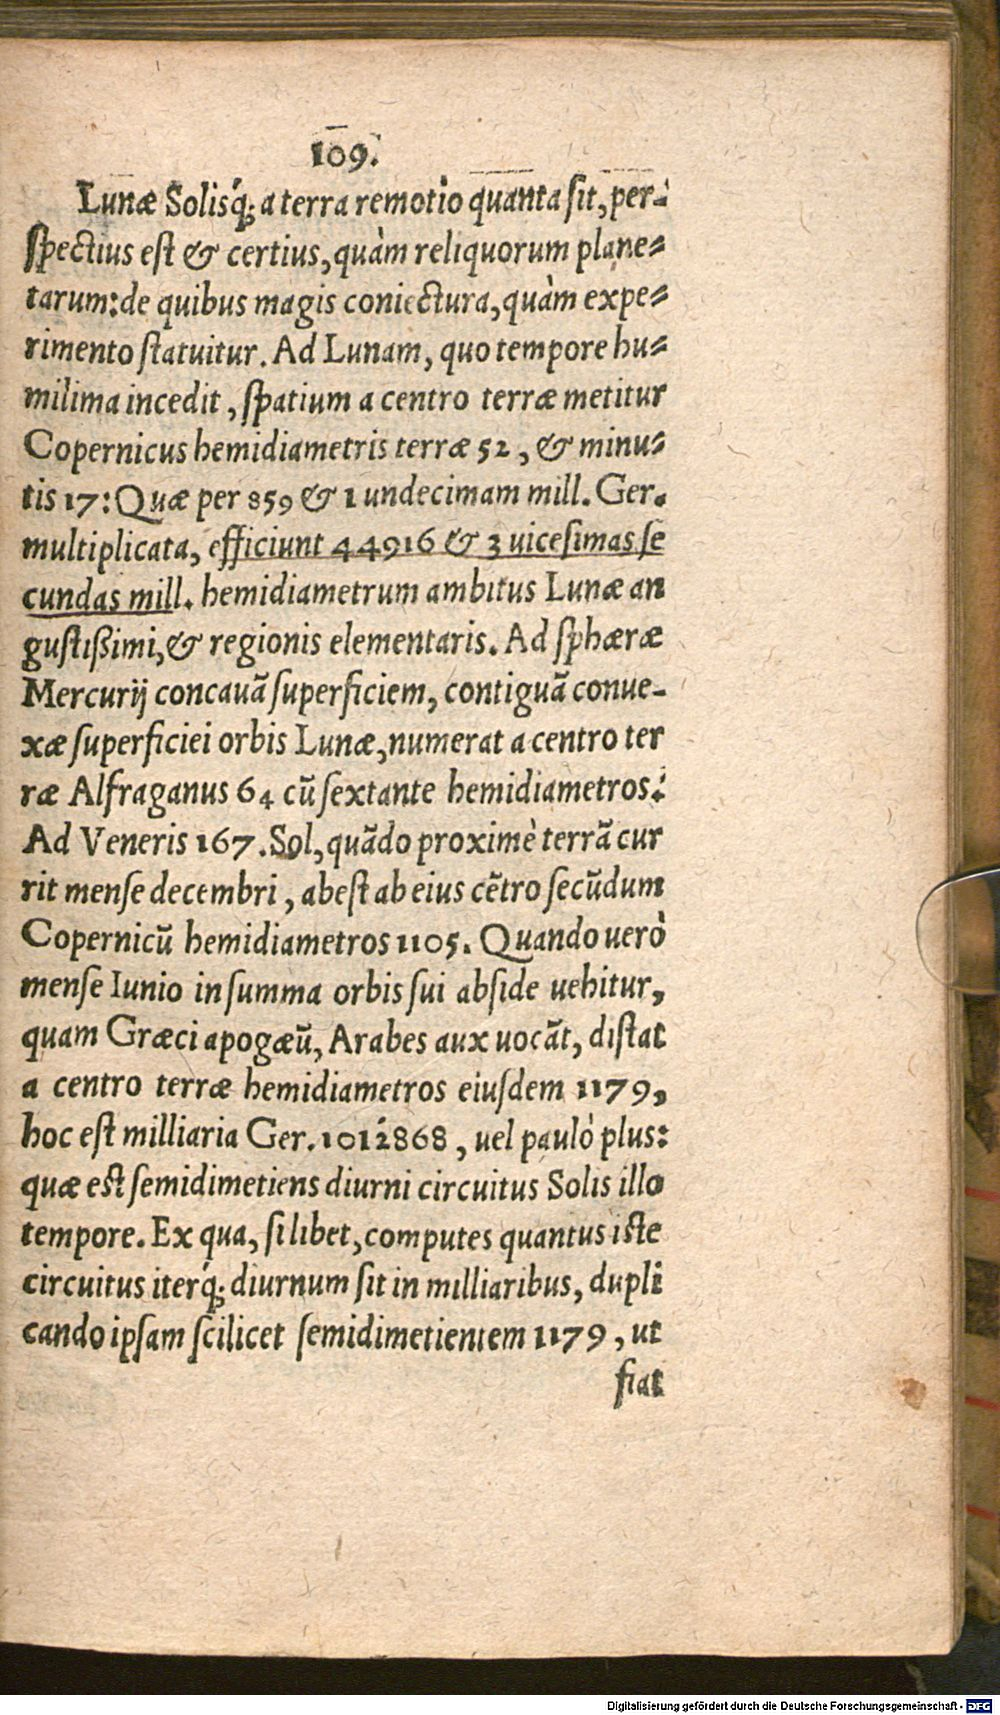 109.
Lunæ Solisq́; a terra remotio quanta sit, per-
spectius est & certius, quàm reliquorum plane-
tarum: de quibus magis coniectura, quàm expe-
rimento statuitur. Ad Lunam, quo tempore hu-
milima incedit, spatium a centro terræ metitur
Copernicus hemidiametris terræ 52, & minu-
tis 17: Quæ per 859 & 1 undecimam mill. Ger.
multiplicata, efficiunt 44916 & 3 vicesimas se
cundas mill. hemidiametrum ambitus Lunæ an
gustißimi, & regionis elementaris. Ad sphæræ
Mercurij concauã superficiem, contiguã conue-
xæ superficiei orbis Lunæ, numerat a centro ter
ræ Alfraganus 64 cũ sextante hemidiametros:
Ad Veneris 167. Sol, quãdo proximè terrã cur
rit mense decembri, abest ab eius cẽtro secũdum
Copernicũ hemidiametros 1105. Quando uerò
mense Iunio in summa orbis sui abside uehitur,
quam Græci apogæũ, Arabes aux uocãt, distat
a centro terræ hemidiametros eiusdem 1179,
hoc est milliaria Ger. 1012868, uel paulò plus:
quæ est semidimetiens diurni circuitus Solis illo
tempore. Ex qua, si libet, computes quantus iste
circuitus iterq́; diurnum sit in milliaribus, dupli
cando ipsam scilicet semidimetientem 1179, ut
fiat
Digitalisierung gefördert durch die Deutsche Forschungsgemeinschaft - DFG